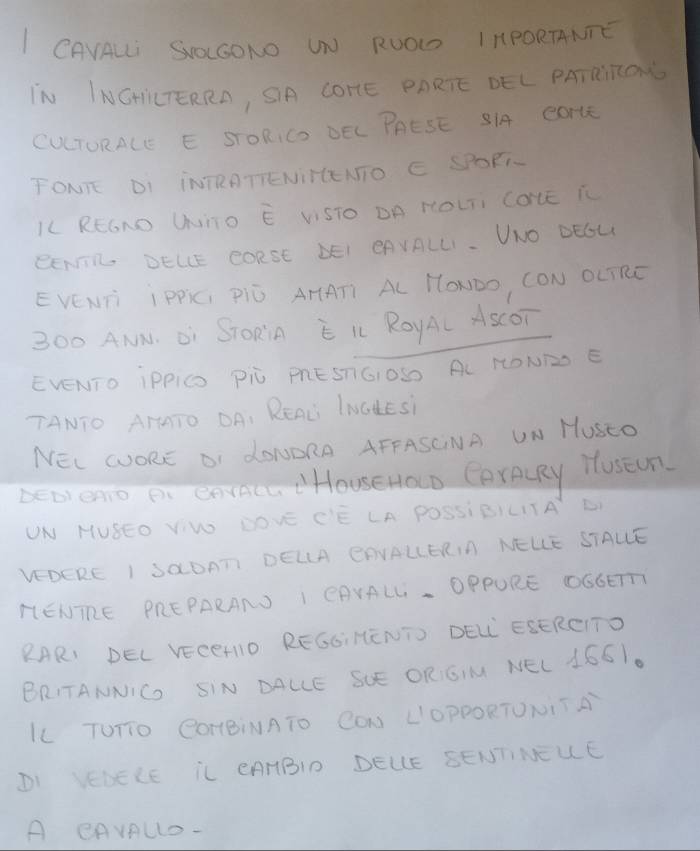 I CAVALLI SVOLGONO UN RUOLO IMPORTANTE
IN INGHILTERRA, SIA COME PARTE DEL PATRIMONIO
CULTURALE E STORICO DEL PAESE SIA COME
FONTE DI INTRATTENIMENTO E SPORT-
IL REGNO UNITO È VISTO DA MOLTI COME IL
CENTRO DELLE CORSE DEI CAVALLI. UNO DEGLI
EVENTI IPPICI PIÙ AMATI AL MONDO, CON OLTRE
300 ANNI DI STORIA È IL ROYAL ASCOT
EVENTO IPPICO PIÙ PRESTIGIOSO AL MONDO E
TANTO AMATO DAI REALI INGLESI
NEL CUORE DI LONDRA AFFASCINA UN MUSEO
DEDICATO AI CAVALLI L'HOUSEHOLD CAVALRY MUSEUM-
UN MUSEO VIVO DOVE C'È LA POSSIBILITÀ DI
VEDERE I SOLDATI DELLA CAVALLERIA NELLE STALLE
MENTRE PREPARANO I CAVALLI. OPPURE OGGETTI
RARI DEL VECCHIO REGGIMENTO DELL'ESERCITO
BRITANNICO SIN DALLE SUE ORIGINI NEL 1661.
IL TUTTO COMBINATO CON L'OPPORTUNITÀ
DI VEDERE IL CAMBIO DELLE SENTINELLE
A CAVALLO-